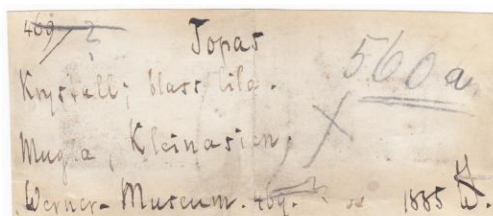 469 ? Topas
560a
Krystall; blass lila.
Mugla, Kleinasien.
Werner-Museum. 469. 1885 W.